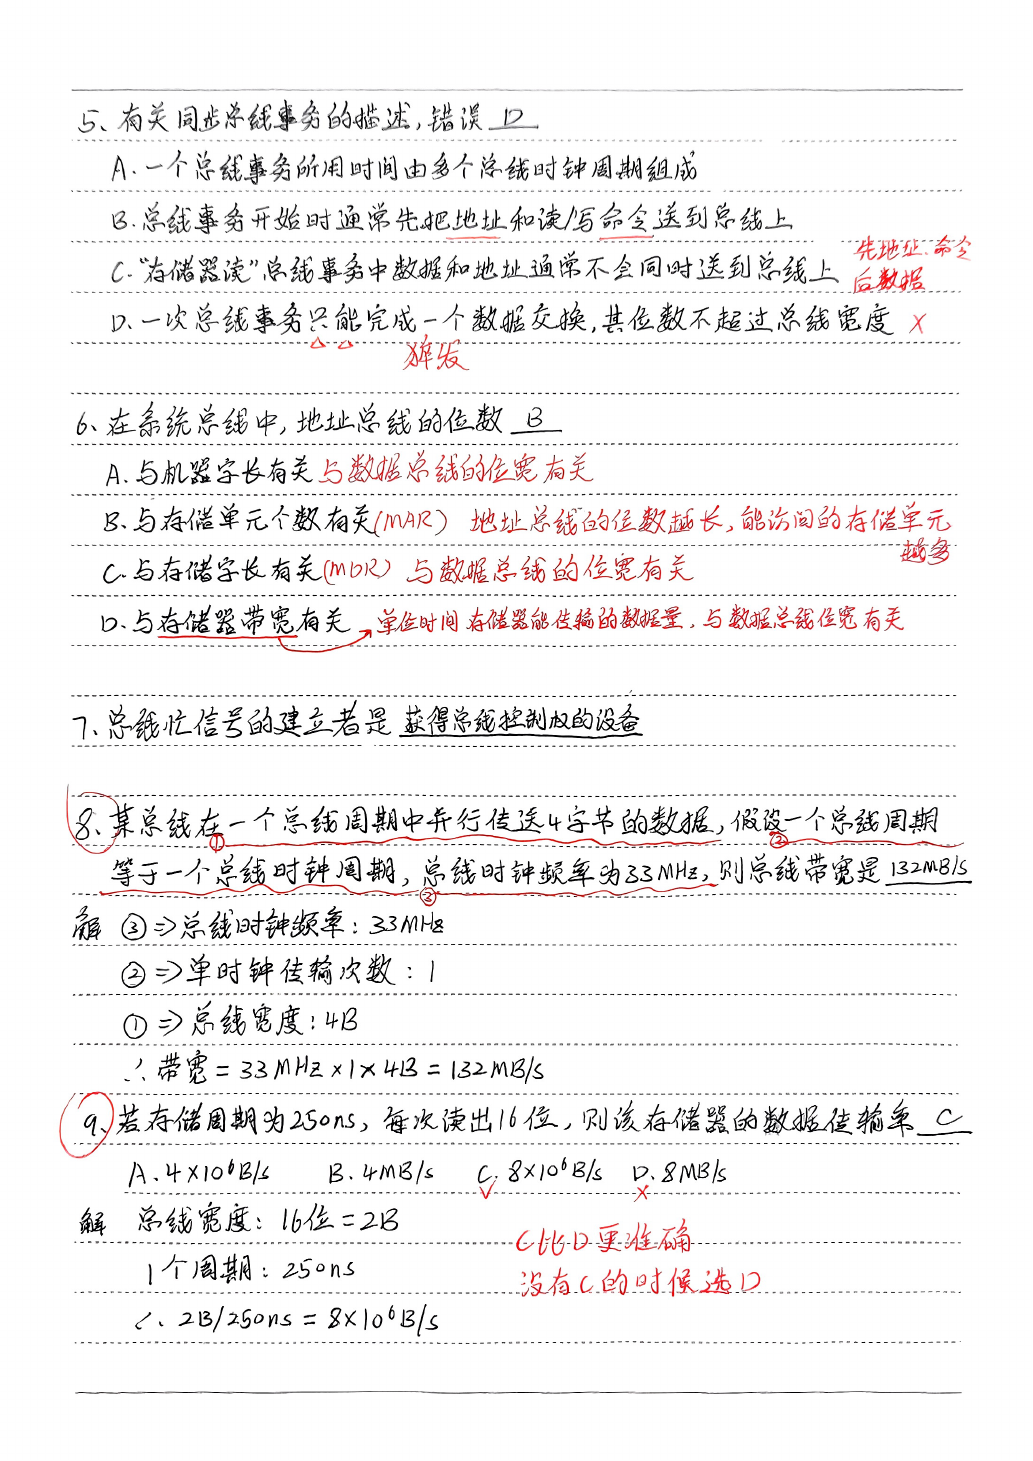 5、有关同步总线事务的描述,错误 D
A.一个总线事务所用时间由多个总线时钟周期组成
B.总线事务开始时通常先把地址和读/写命令送到总线上
先地址.命令
C.“存储器读”总线事务中数据和地址通常不会同时送到总线上
后数据
D.一次总线事务只能完成一个数据交换,其位数不超过总线宽度 ×
猝发
6、在系统总线中,地址总线的位数 B
A.与机器字长有关 与数据总线的位宽有关
B.与存储单元个数有关(MAR) 地址总线的位数越长,能访问的存储单元
越多
C.与存储字长有关(MDR) 与数据总线的位宽有关
D.与存储器带宽有关 → 单位时间存储器能传输的数据量,与数据总线位宽有关
7、总线忙信号的建立者是 获得总线控制权的设备
8、某总线在一个总线周期中并行传送4字节的数据,假设一个总线周期
① ②
等于一个总线时钟周期,总线时钟频率为33MHz,则总线带宽是 132MB/s
③
解 ③⇒总线时钟频率:33MHz
②⇒单时钟传输次数:1
①⇒总线宽度:4B
∴带宽=33MHz×1×4B=132MB/s
9、若存储周期为250ns,每次读出16位,则该存储器的数据传输率 C
A.4×10⁶B/s B.4MB/s C.8×10⁶B/s D.8MB/s
√ ×
解 总线宽度:16位=2B
C比D更准确
1个周期:250ns
没有C的时候选D
∴ 2B/250ns=8×10⁶B/s